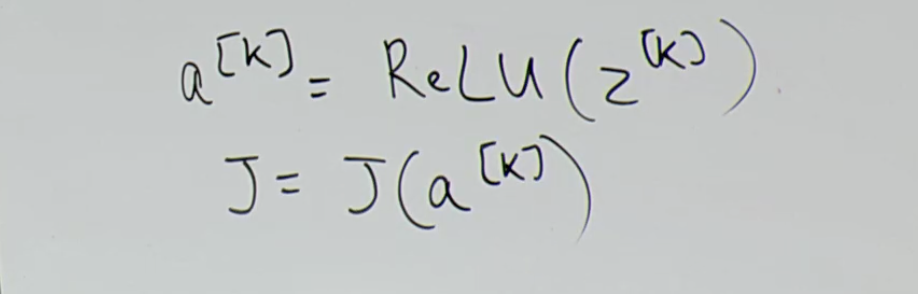 a^[K] = ReLU(z^[K])
J = J(a^[K])